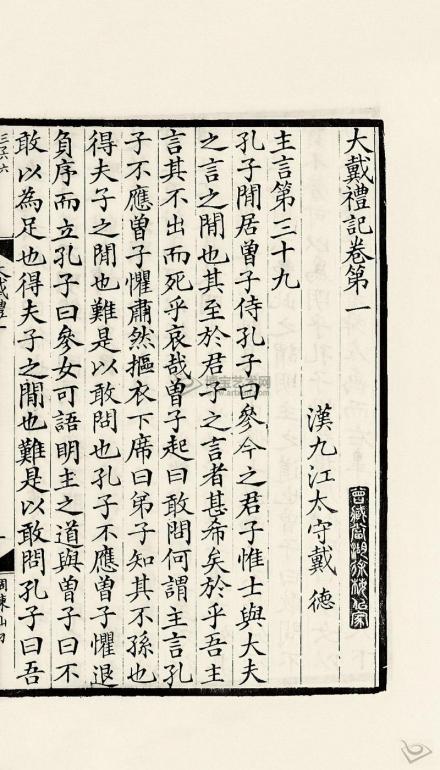 大戴禮記卷第一
漢九江太守戴德
主言第三十九
孔子閒居曾子侍孔子曰參今之君子惟士與大夫
之言之閒也其至於君子之言者甚希矣於乎吾主
言其不出而死乎哀哉曾子起曰敢問何謂主言孔
子不應曾子懼肅然摳衣下席曰弟子知其不孫也
得夫子之閒也難是以敢問也孔子不應曾子懼退
負序而立孔子曰參女可語明主之道與曾子曰不
敢以為足也得夫子之閒也難是以敢問孔子曰吾
博宝艺术网